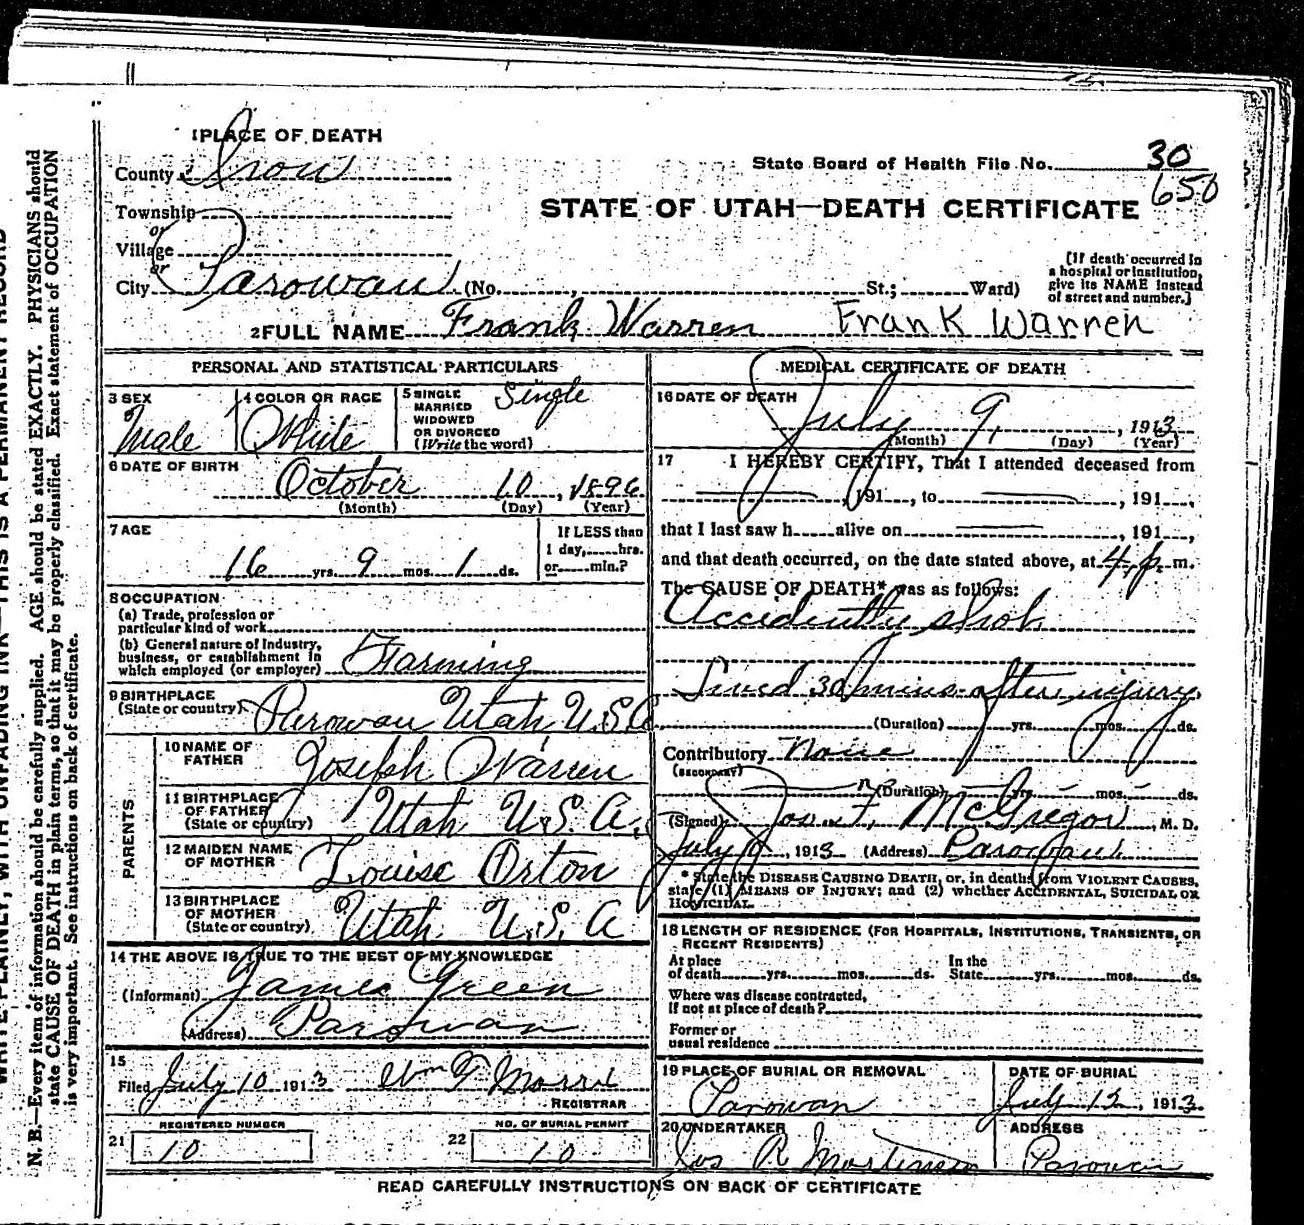 1 PLACE OF DEATH
County Iron
State Board of Health File No. 30
650
Township
or
Village
or
City Parowan (No. , St.; Ward)
STATE OF UTAH—DEATH CERTIFICATE
[If death occurred in
a hospital or institution,
give its NAME instead
of street and number.]
2 FULL NAME Frank Warren Frank Warren
PERSONAL AND STATISTICAL PARTICULARS
3 SEX
Male
4 COLOR OR RACE
White
5 SINGLE
MARRIED
WIDOWED
OR DIVORCED
(Write the word)
Single
6 DATE OF BIRTH
October 10, 1896
(Month) (Day) (Year)
7 AGE
16 yrs. 9 mos. 1 ds.
If LESS than
1 day, hrs.
or min.?
8 OCCUPATION
(a) Trade, profession or
particular kind of work
(b) General nature of industry,
business, or establishment in
which employed (or employer) Farming
9 BIRTHPLACE
(State or country) Parowan Utah U.S.A
PARENTS
10 NAME OF
FATHER Joseph Warren
11 BIRTHPLACE
OF FATHER
(State or country) Utah U.S.A.
12 MAIDEN NAME
OF MOTHER Louise Orton
13 BIRTHPLACE
OF MOTHER
(State or country) Utah U.S.A
14 THE ABOVE IS TRUE TO THE BEST OF MY KNOWLEDGE
(Informant) James Green
(Address) Parowan
15
Filed July 10 1913 Wm F Morris
REGISTRAR
REGISTERED NUMBER
21 10
NO. OF BURIAL PERMIT
22 10
MEDICAL CERTIFICATE OF DEATH
16 DATE OF DEATH
July 9, , 1913
(Month) (Day) (Year)
17 I HEREBY CERTIFY, That I attended deceased from
, 191 , to , 191 ,
that I last saw h alive on , 191 ,
and that death occurred, on the date stated above, at 4 p. m.
The CAUSE OF DEATH* was as follows:
Accidently shot
Lived 30 mins after injury
(Duration) yrs. mos. ds.
Contributory None
(SECONDARY)
(Duration) yrs. mos. ds.
(Signed) Jos. F. McGregor, M. D.
July , 1913 (Address) Parowan
* State the DISEASE CAUSING DEATH, or, in deaths from VIOLENT CAUSES,
state (1) MEANS OF INJURY; and (2) whether ACCIDENTAL, SUICIDAL OR
HOMICIDAL.
18 LENGTH OF RESIDENCE (FOR HOSPITALS, INSTITUTIONS, TRANSIENTS, OR
RECENT RESIDENTS)
At place
of death yrs. mos. ds.
In the
State yrs. mos. ds.
Where was disease contracted,
if not at place of death?
Former or
usual residence
19 PLACE OF BURIAL OR REMOVAL
Parowan
DATE OF BURIAL
July 12, 1913
20 UNDERTAKER
Jos R Mortensen
ADDRESS
Parowan
READ CAREFULLY INSTRUCTIONS ON BACK OF CERTIFICATE
N. B.—Every item of information should be carefully supplied. AGE should be stated EXACTLY. PHYSICIANS should
state CAUSE OF DEATH in plain terms, so that it may be properly classified. Exact statement of OCCUPATION
is very important. See instructions on back of certificate.